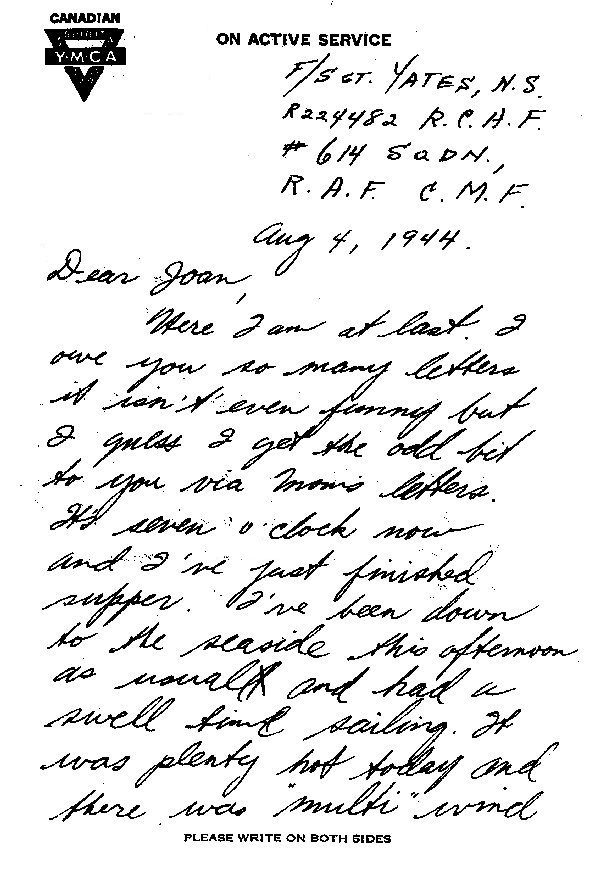 CANADIAN
Y·M·C·A
ON ACTIVE SERVICE
F/SGT. YATES, N.S.
R224482 R.C.A.F.
# 614 SQDN.,
R.A.F. C.M.F.
Aug 4, 1944.
Dear Joan,
Here I am at last. I
owe you so many letters
it isn't even funny but
I guess I get the odd bit
to you via Mom's letters.
It's seven o'clock now
and I've just finished
supper. I've been down
to the seaside this afternoon
as usual and had a
swell time sailing. It
was plenty hot today and
there was "multi" wind
PLEASE WRITE ON BOTH SIDES